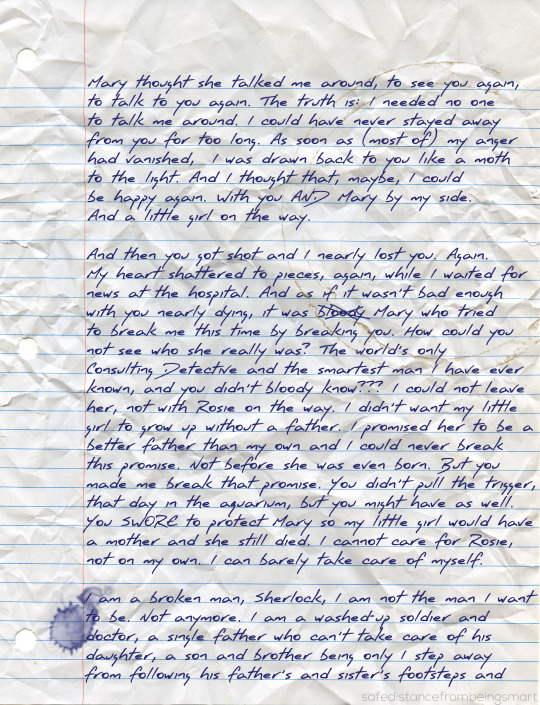 Mary thought she talked me around, to see you again,
to talk to you again. The truth is: I needed no one
to talk me around. I could have never stayed away
from you for too long. As soon as (most of) my anger
had vanished, I was drawn back to you like a moth
to the light. And I thought that, maybe, I could
be happy again. With you AND Mary by my side.
And a little girl on the way.
And then you got shot and I nearly lost you. Again.
My heart shattered to pieces, again, while I waited for
news at the hospital. And as if it wasn't bad enough
with you nearly dying, it was bloody Mary who tried
to break me this time by breaking you. How could you
not see who she really was? The world's only
Consulting Detective and the smartest man I have ever
known, and you didn't bloody know??? I could not leave
her, not with Rosie on the way. I didn't want my little
girl to grow up without a father. I promised her to be a
better father than my own and I could never break
this promise. Not before she was even born. But you
made me break that promise. You didn't pull the trigger,
that day in the aquarium, but you might have as well.
You SWORE to protect Mary so my little girl would have
a mother and she still died. I cannot care for Rosie,
not on my own. I can barely take care of myself.
I am a broken man, Sherlock, I am not the man I want
to be. Not anymore. I am a washed-up soldier and
doctor, a single father who can't take care of his
daughter, a son and brother being only 1 step away
from following his father's and sister's footsteps and
safedistancefrombeingsmart